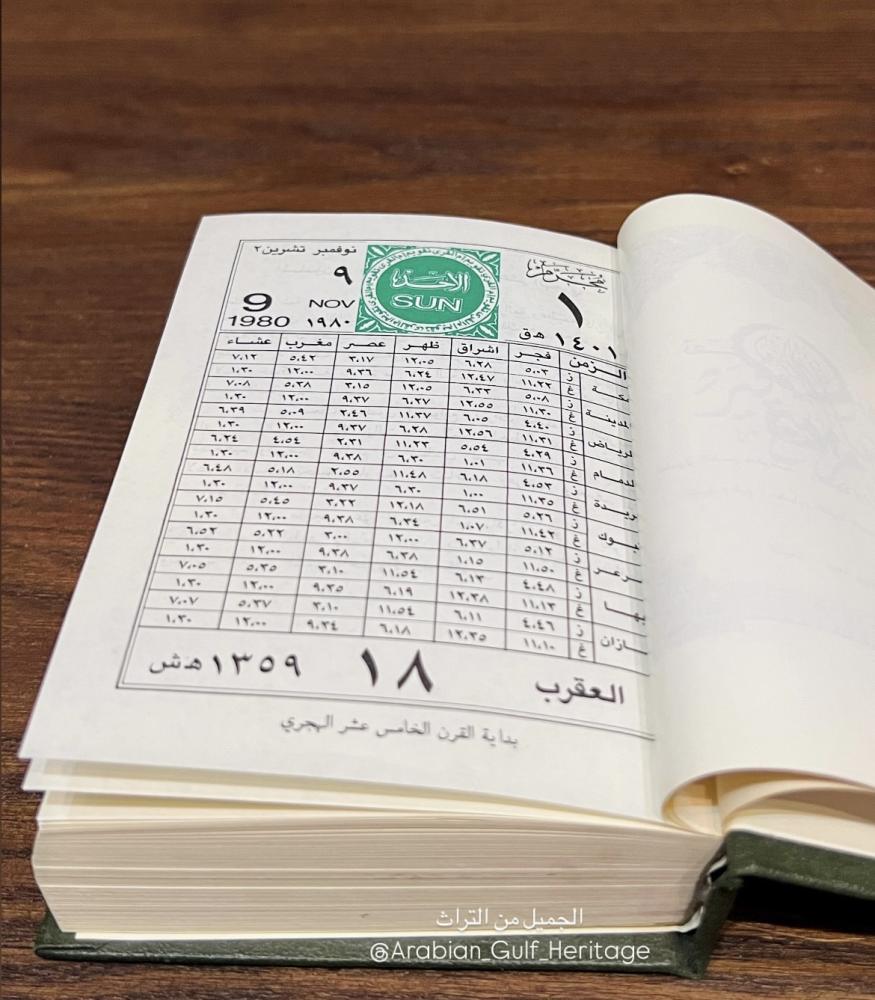 محرم نوفمبر تشرين٢
١ الأحد ٩
SUN NOV 9
١٤٠١ هـ ق ١٩٨٠ 1980
الزمن فجر اشراق ظهر عصر مغرب عشاء
مكة ز ٥،٠٣ ٦،٢٨ ١٢،٠٥ ٣،١٧ ٥،٤٢ ٧،١٢
غ ١١،٢٢ ١٢،٤٧ ٦،٢٤ ٩،٣٦ ١٢،٠٠ ١،٣٠
لمدينة ز ٥،٠٨ ٦،٣٣ ١٢،٠٥ ٣،١٥ ٥،٣٨ ٧،٠٨
غ ١١،٣٠ ١٢،٥٥ ٦،٢٧ ٩،٣٧ ١٢،٠٠ ١،٣٠
لرياض ز ٤،٤٠ ٦،٠٥ ١١،٣٧ ٢،٤٦ ٥،٠٩ ٦،٣٩
غ ١١،٣١ ١٢،٥٦ ٦،٢٨ ٩،٣٧ ١٢،٠٠ ١،٣٠
لدمام ز ٤،٢٩ ٥،٥٤ ١١،٢٣ ٢،٣١ ٤،٥٤ ٦،٢٤
غ ١١،٣٦ ١،٠١ ٦،٣٠ ٩،٣٨ ١٢،٠٠ ١،٣٠
ريدة ز ٤،٥٣ ٦،١٨ ١١،٤٨ ٢،٥٥ ٥،١٨ ٦،٤٨
غ ١١،٣٥ ١،٠٠ ٦،٣٠ ٩،٣٧ ١٢،٠٠ ١،٣٠
بوك ز ٥،٢٦ ٦،٥١ ١٢،١٨ ٣،٢٢ ٥،٤٥ ٧،١٥
غ ١١،٤٢ ١،٠٧ ٦،٣٤ ٩،٣٨ ١٢،٠٠ ١،٣٠
رعر ز ٥،١٢ ٦،٣٧ ١٢،٠٠ ٣،٠٠ ٥،٢٢ ٦،٥٢
غ ١١،٥٠ ١،١٥ ٦،٣٨ ٩،٣٨ ١٢،٠٠ ١،٣٠
بها ز ٤،٤٨ ٦،١٣ ١١،٥٤ ٣،١٠ ٥،٣٥ ٧،٠٥
غ ١١،١٣ ١٢،٣٨ ٦،١٩ ٩،٣٥ ١٢،٠٠ ١،٣٠
ازان ز ٤،٤٦ ٦،١١ ١١،٥٤ ٣،١٠ ٥،٣٧ ٧،٠٧
غ ١١،١٠ ١٢،٣٥ ٦،١٨ ٩،٣٤ ١٢،٠٠ ١،٣٠
العقرب ١٨ ١٣٥٩ هـ ش
بداية القرن الخامس عشر الهجري
الجميل من التراث
@Arabian_Gulf_Heritage